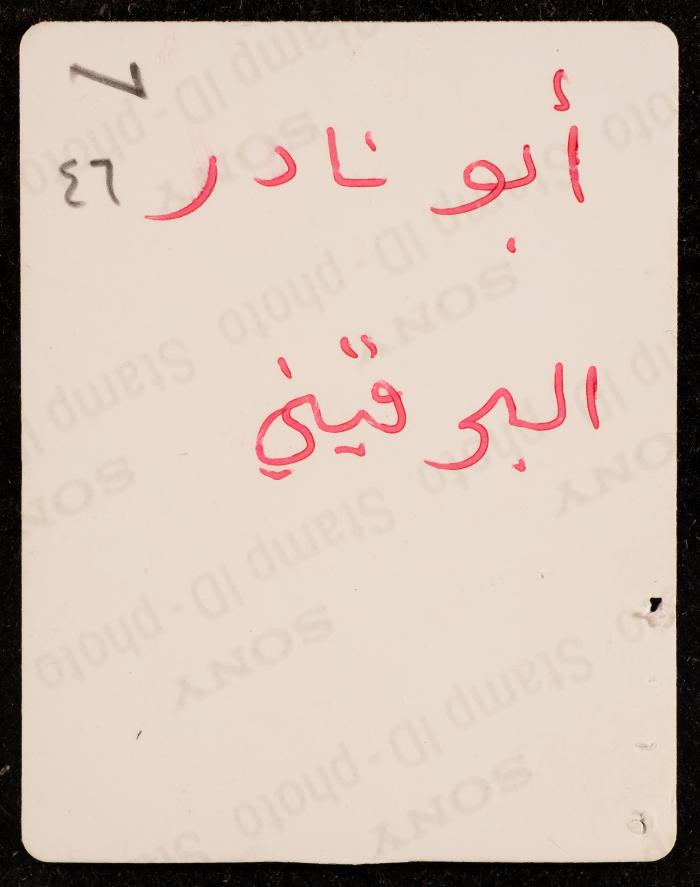 ٧
أبو نادر
٤٦
البرقيني
SONY
Stamp ID - photo
SONY
Stamp ID - photo
SONY
Stamp ID - photo
SONY
Stamp ID - photo
SONY